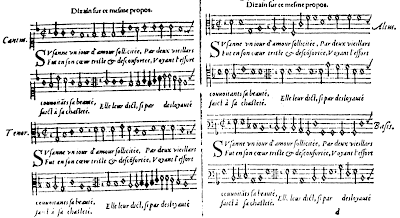 Dizain sur ce mesme propos.
Cantus.
SVsanne vn iour d'amour sollicitée, Par deux vieillars
Fut en son cœur triste & desconfortée, Voyant l'effort
conuoitants sa beauté, Elle leur dict, si par desloyauté
faict à sa chasteté.
Tenor.
SVsanne vn iour d'amour sollicitée, Par deux vieillars
Fut en son cœur triste & desconfortée, Voyant l'effort
conuoitants sa beauté, Elle leur dict, si par desloyauté
faict à sa chasteté.
Dizain sur ce mesme propos.
Altus.
SVsanne vn iour d'amour sollicitée, Par deux vieillars
Fut en son cœur triste & desconfortée, Voyant l'effort
conuoitants sa beauté, Elle leur dict, si par desloyauté
faict à sa chasteté.
SVsanne vn iour d'amour sollicitée, Par deux vieillars
Fut en son cœur triste & desconfortée, Voyant l'effort
conuoitants sa beauté, Elle leur dict, si par desloyauté
faict à sa chasteté.
d